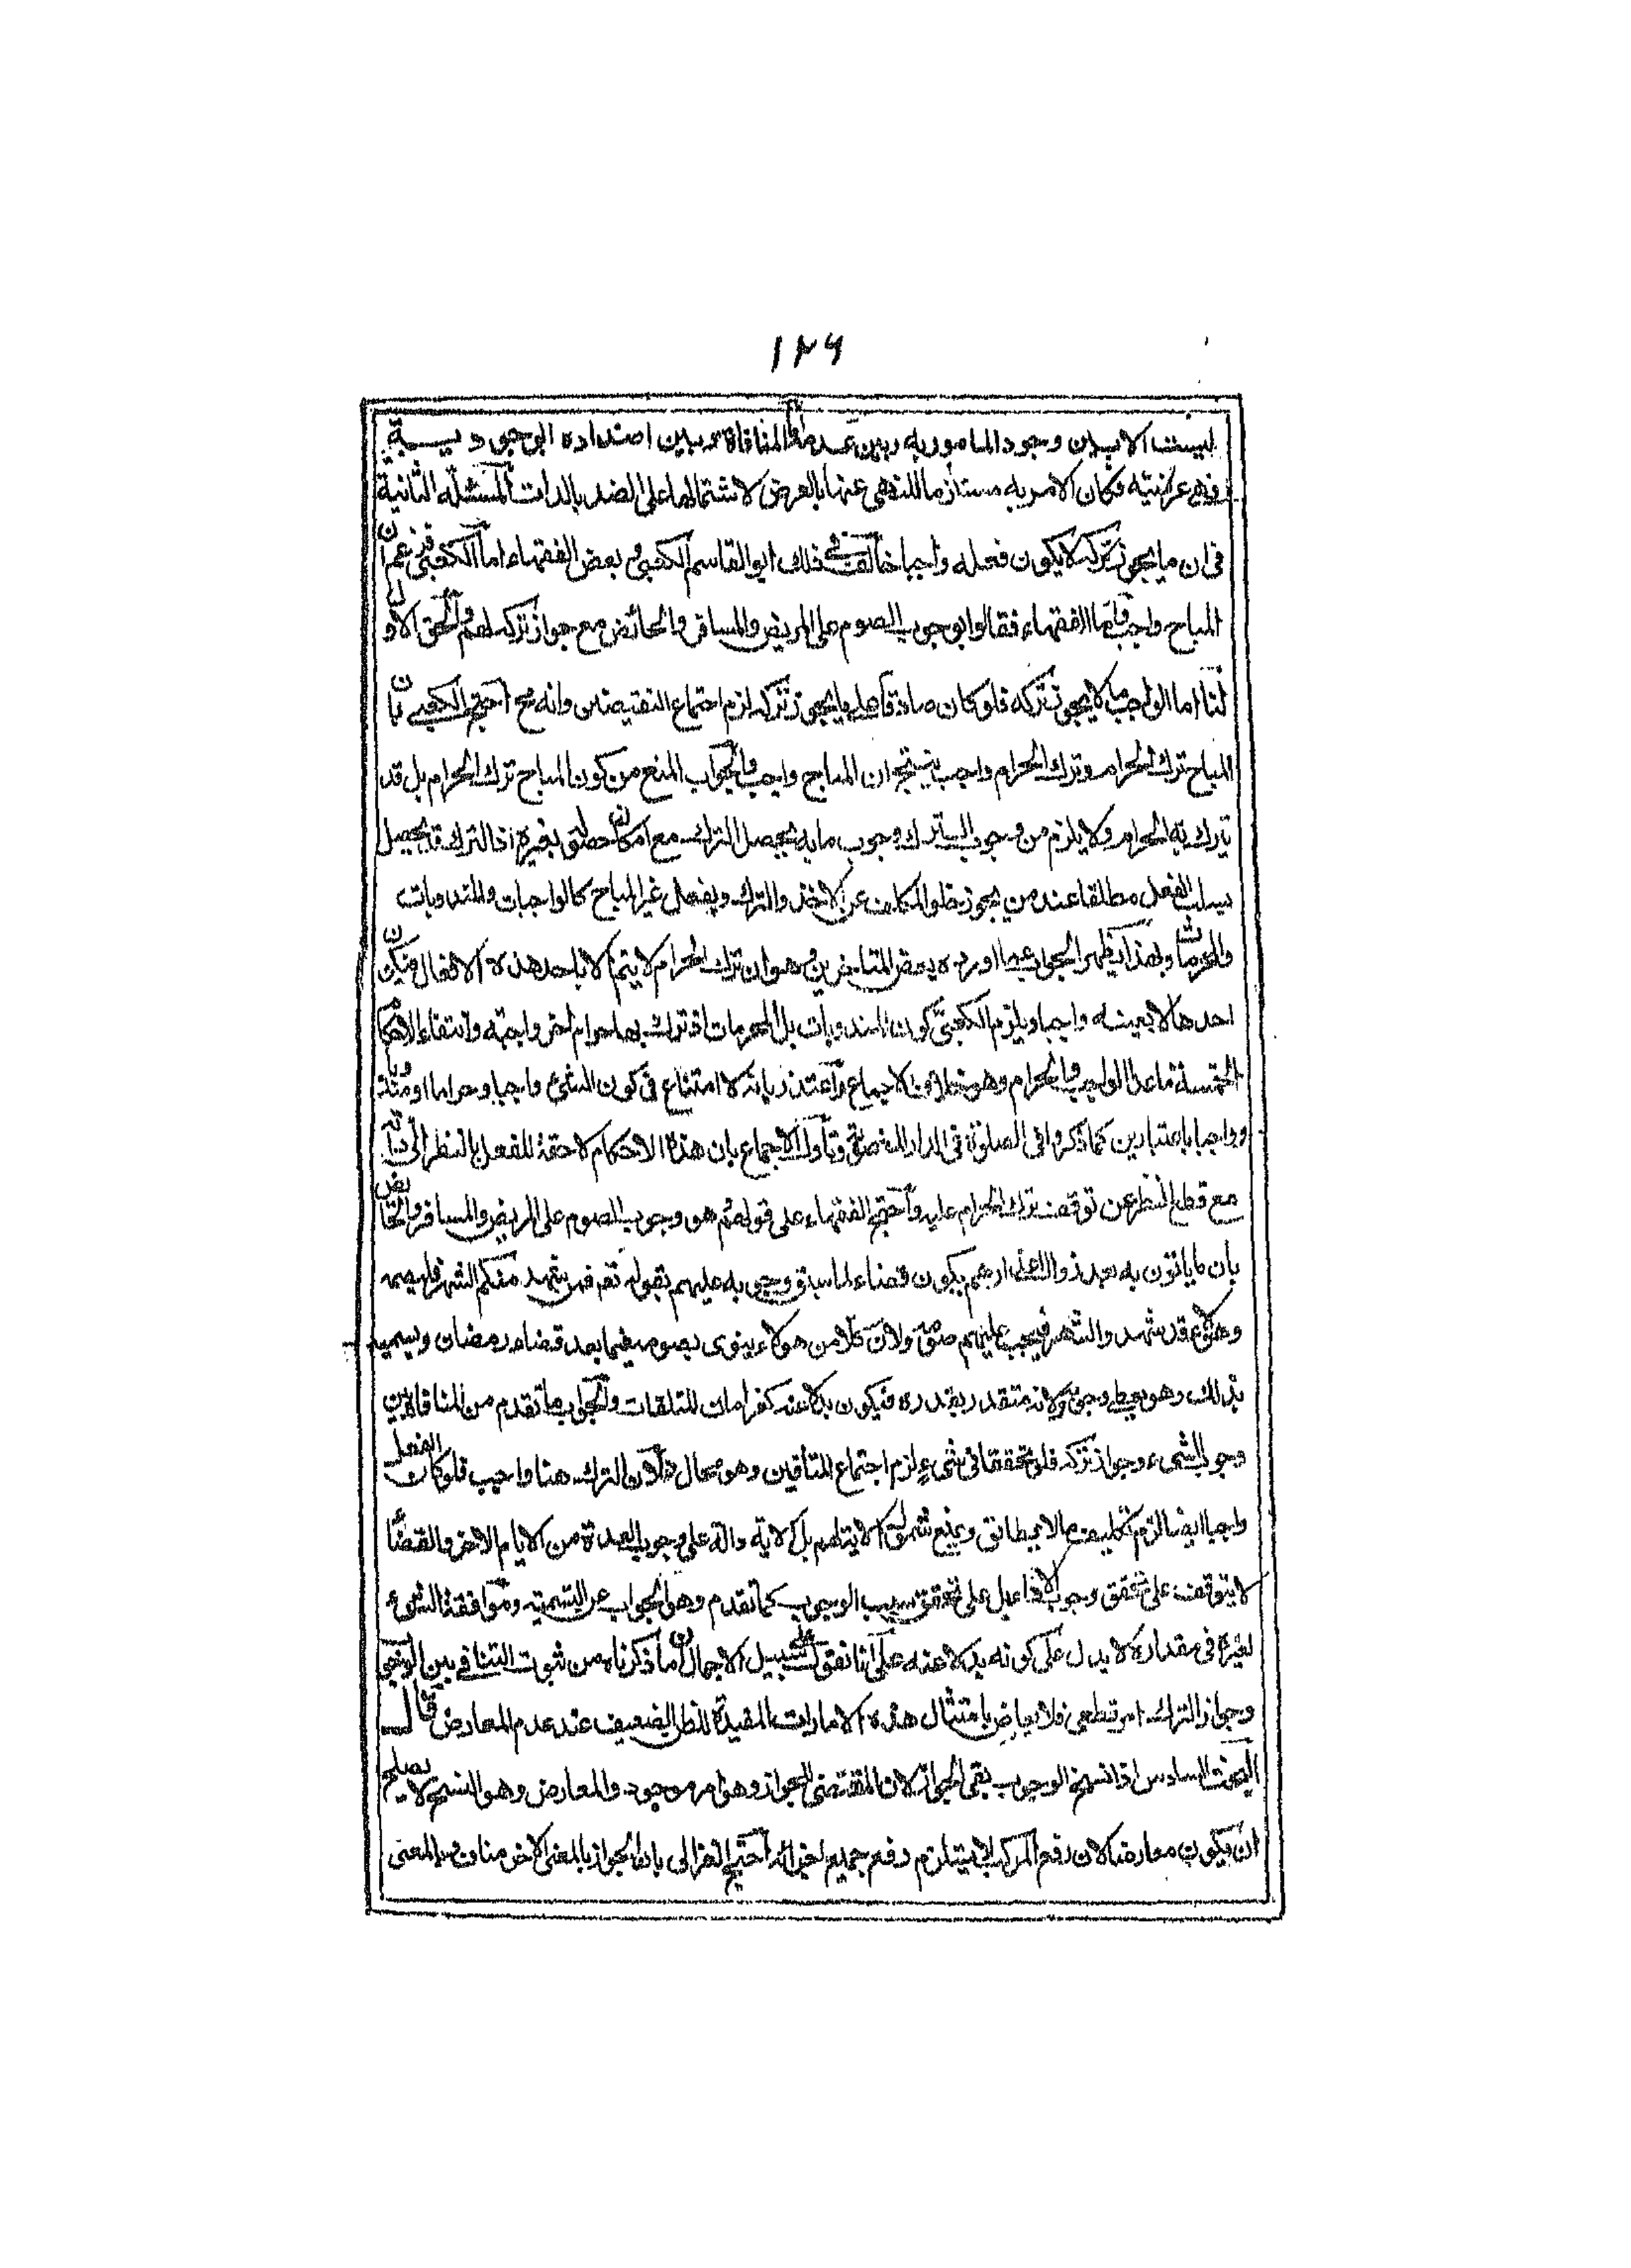 ١٢٦
ليست الا بين وجود المامور به وبين عدمه واما المنافاة بينه وبين اضداده الوجودية
فهى عرضية فكان الامر به مستلزما للنهى عنها بالعرض لاشتمالها على الضد بالذات المسئلة الثانية
فى ان ما يجوز تركه لا يكون فعله واجبا خالف فى ذلك ابو القاسم الكعبى وبعض الفقهاء اما الكعبى فزعم ان
المباح واجب واما الفقهاء فقالوا بوجوب الصوم على المريض والمسافر والحائض مع جواز تركه لهم والحق الاول
لنا اما الواجب ما لا يجوز تركه فلو كان صادقا على ما يجوز تركه لزم اجتماع النقيضين وانه مح احتج الكعبى بان
المباح ترك الحرام وترك الحرام واجب ينتج ان المباح واجب والجواب المنع من كون المباح ترك الحرام بل قد
يترك به الحرام ولا يلزم من وجوب الترك وجوب ما به يحصل الترك مع امكان حصوله بغيره اذ الترك قد يحصل
بسلب الفعل مطلقا عند من يجوز خلو المكلف عن الاخذ والترك وبفعل غير المباح كالواجبات والمندوبات
والمحرمات وبهذا يظهر الجواب عما اورده بعض المتاخرين وهو ان ترك الحرام لا يتم الا باحد هذه الافعال فيكون
احدها لا بعينه واجبا ويلزم الكعبى كون المندوبات بل المحرمات اذ ترك بها حرام اخر واجبة وانتفاء الاحكام
الخمسة ما عدا الواجب والحرام وهو خلاف الاجماع واعتذر بانه لا امتناع فى كون الشئ واجبا وحراما او مندوبا
وواجبا باعتبارين كما ذكروا فى الصلوة فى الدار المغصوبة وتأول الاجماع بان هذه الاحكام لاحقة للفعل بالنظر الى ذاته
مع قطع النظر عن توقف ترك الحرام عليه واحتج الفقهاء على قولهم هو وجوب الصوم على المريض والمسافر والحائض
بان ما ياتون به بعد زوال اعذارهم يكون قضاء لما سبق وجوبه عليهم بقوله تعم فمن شهد منكم الشهر فليصمه
وهؤلاء قد شهدوا الشهر فيجب عليهم صومه ولان كلا من هولاء ينوى بصومه فيما بعد قضاء رمضان ويسميه
بذلك وهو يعطى وجوبه ولانه متقدر بقدره فيكون بدلا عنه كغرامات المتلفات والجواب ما تقدم من المنافاة بين
وجوب الشئ وجواز تركه فلو تحققا فى شئ لزم اجتماع المتنافيين وهو محال ولان الترك هنا واجب فلو كان الفعل
واجبا ايضا لزم تكليف ما لا يطاق ويمنع شمول الاية لهم بل الاية دالة على وجوب العدة من الايام الاخر والقضاء
لا يتوقف على تحقق وجوب الاداء بل على تحقق سبب الوجوب كما تقدم وهو الجواب عن التسمية وموافقة الشئ
لغيره فى مقداره لا يدل على كونه بدلا عنه على انا نقول على سبيل الاجمال ان ما ذكرناه من ثبوت التنافى بين الوجوب
وجواز الترك امر قطعى فلا يعارض بامتثال هذه الامارات المفيدة للظن الضعيف عند عدم المعارض قال
البحث السادس اذا نسخ الوجوب بقى الجواز لان المقتضى للجواز وهو الامر موجود والمعارض وهو النسخ لا يصلح
ان يكون معارضا لان رفع المركب لا يستلزم رفع جميع اجزائه احتج الغزالى بان الجواز بالمعنى الاخر مناف للمعنى